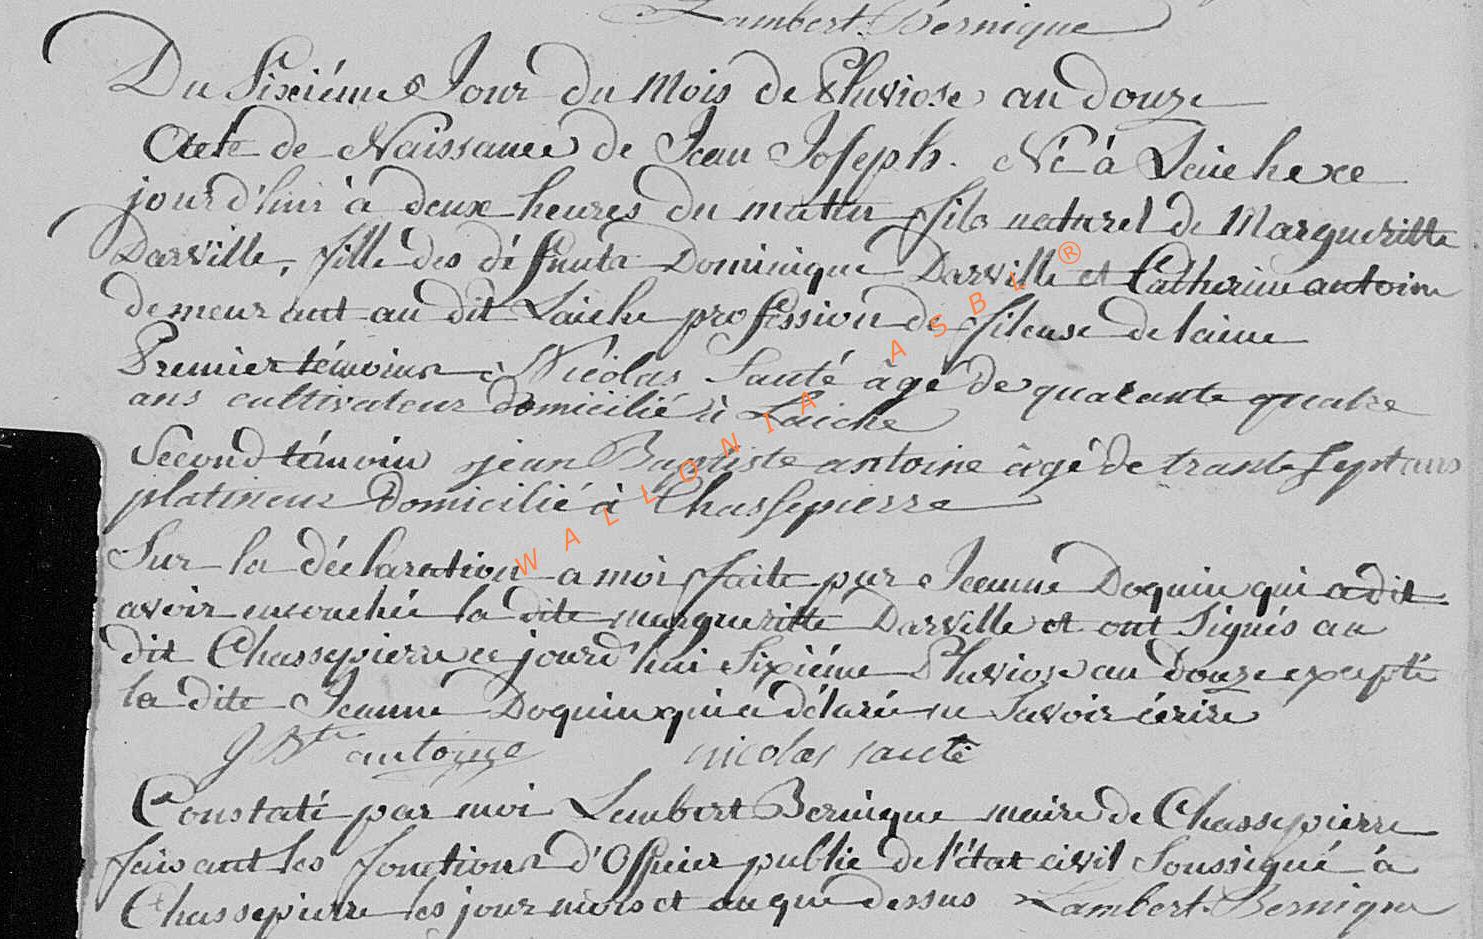 Lambert Bernique
Du Sixiéme Jour du Mois de Pluviose an douze
Acte de Naissance de Jean Joseph. Né à Laiche ce
jourd'hui à deux heures du matin fils naturel de Margueritte
Darville, fille des défunts Dominique Darville et Catherine antoine
demeurant au dit Laiche profession de fileuse de laine
Premier témoins Nicolas Santé âgé de quarante quatre
ans cultivateur domicilié à Laiche
Second témoin jean Baptiste antoine âgé de trante sept ans
platineur Domicilié à Chassepierre
Sur la déclaration a moi faite par Jeanne Doquin qui a dit
avoir encouchée la dite margueritte Darville et ont Signés au
dit Chassepierre ce jourd'hui Sixiéme Pluviose an douze excepté
la dite Jeanne Doquin qui a délaré ne Savoir écrire
J Bte antoine nicolas santé
Constaté par moi Lambert Bernique maire de Chassepierre
faisant les fonctions d'Officier public de l'état civil Soussigné à
Chassepierre les jour mois et an que dessus Lambert Bernique
WALLONIA ASBL ®